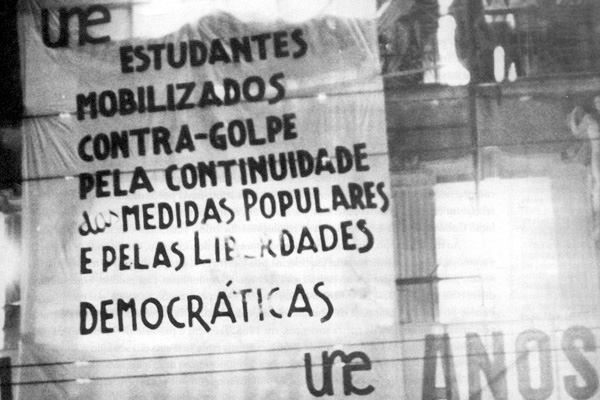 une
ESTUDANTES
MOBILIZADOS
CONTRA-GOLPE
PELA CONTINUIDADE
das MEDIDAS POPULARES
E PELAS LIBERDADES
DEMOCRÁTICAS
une
ANOS